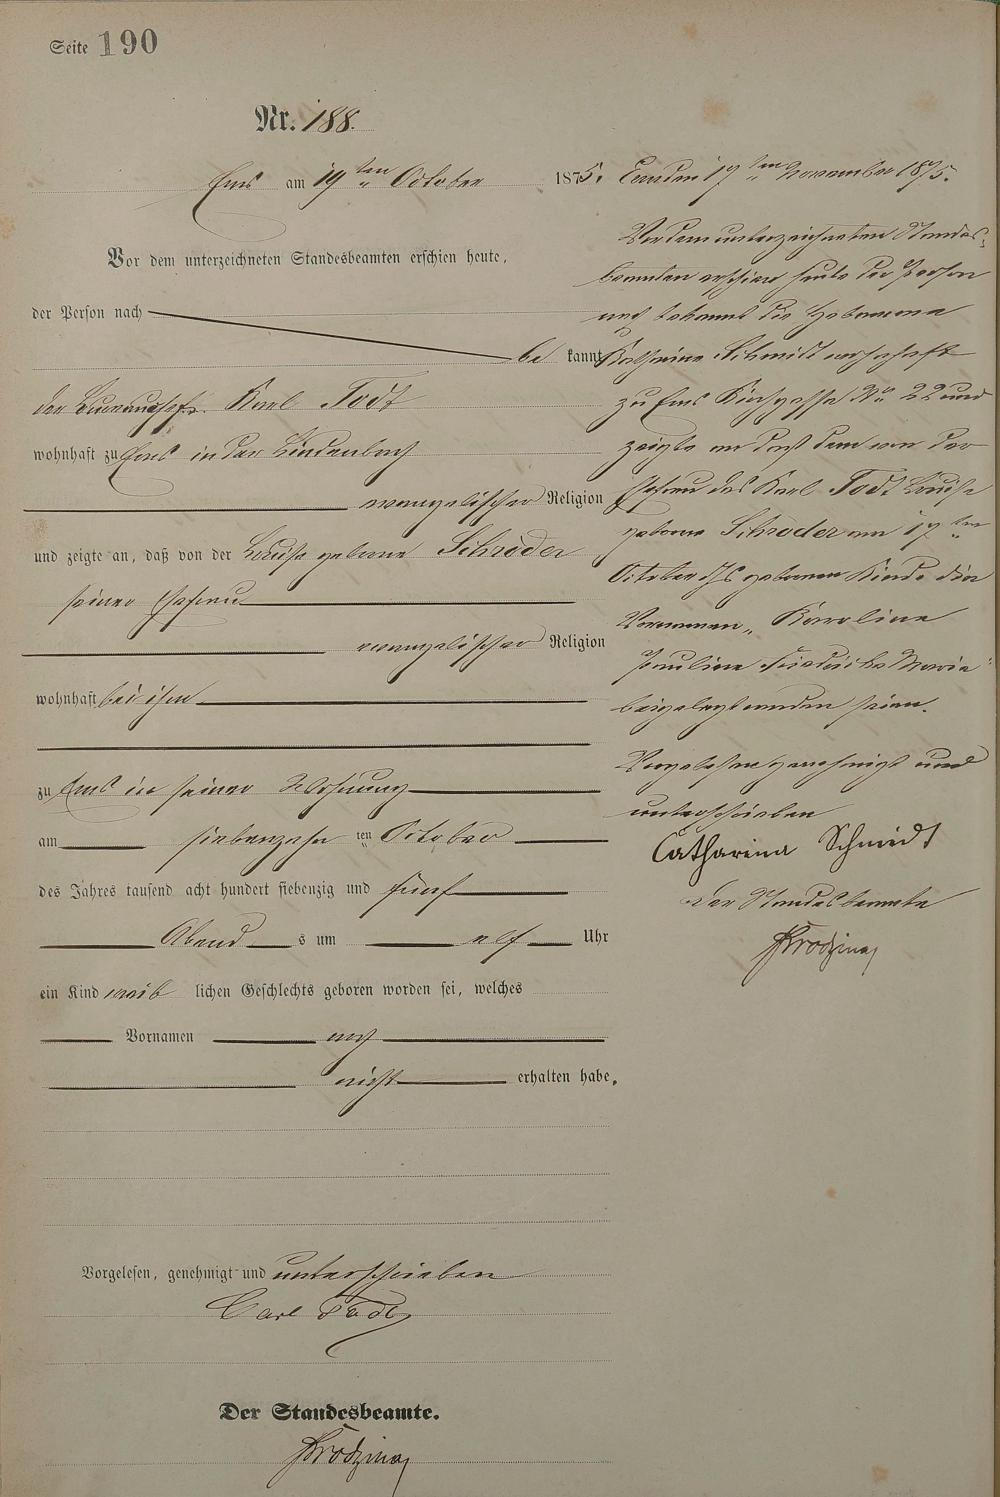 Seite 190
Nr. 188.
Ems am 19ten October 1875.
Vor dem unterzeichneten Standesbeamten erschien heute,
der Person nach
be kannt
der Karl Todt
wohnhaft zu Ems in der Lindenbach
evangelischer Religion
und zeigte an, daß von der Louise geborne Schröder
seiner Ehefrau
evangelischer Religion
wohnhaft bei ihm
zu Ems in seiner Wohnung
am siebenzehn ten October
des Jahres tausend acht hundert siebenzig und fünf
Abend s um elf Uhr
ein Kind weib lichen Geschlechts geboren worden sei, welches
Vornamen noch
nicht erhalten habe.
Vorgelesen, genehmigt und unterschrieben
Carl Todt
Der Standesbeamte.
Ems den 17ten November 1875.
Vor dem unterzeichneten Standes-
beamten erschien heute der Person
nach bekannt die Hebamme
Katharina Schmidt wohnhaft
zu Ems Kirchgasse No 22 und
zeigte an daß dem von der
Ehefrau des Karl Todt Louise
geborne Schröder am 17ten
October geborenen Kinde die
Vornamen „Karoline
Pauline Friedricke Maria"
beigelegt worden seien.
Vorgelesen genehmigt und
unterschrieben
Catharina Schmidt
Der Standesbeamte